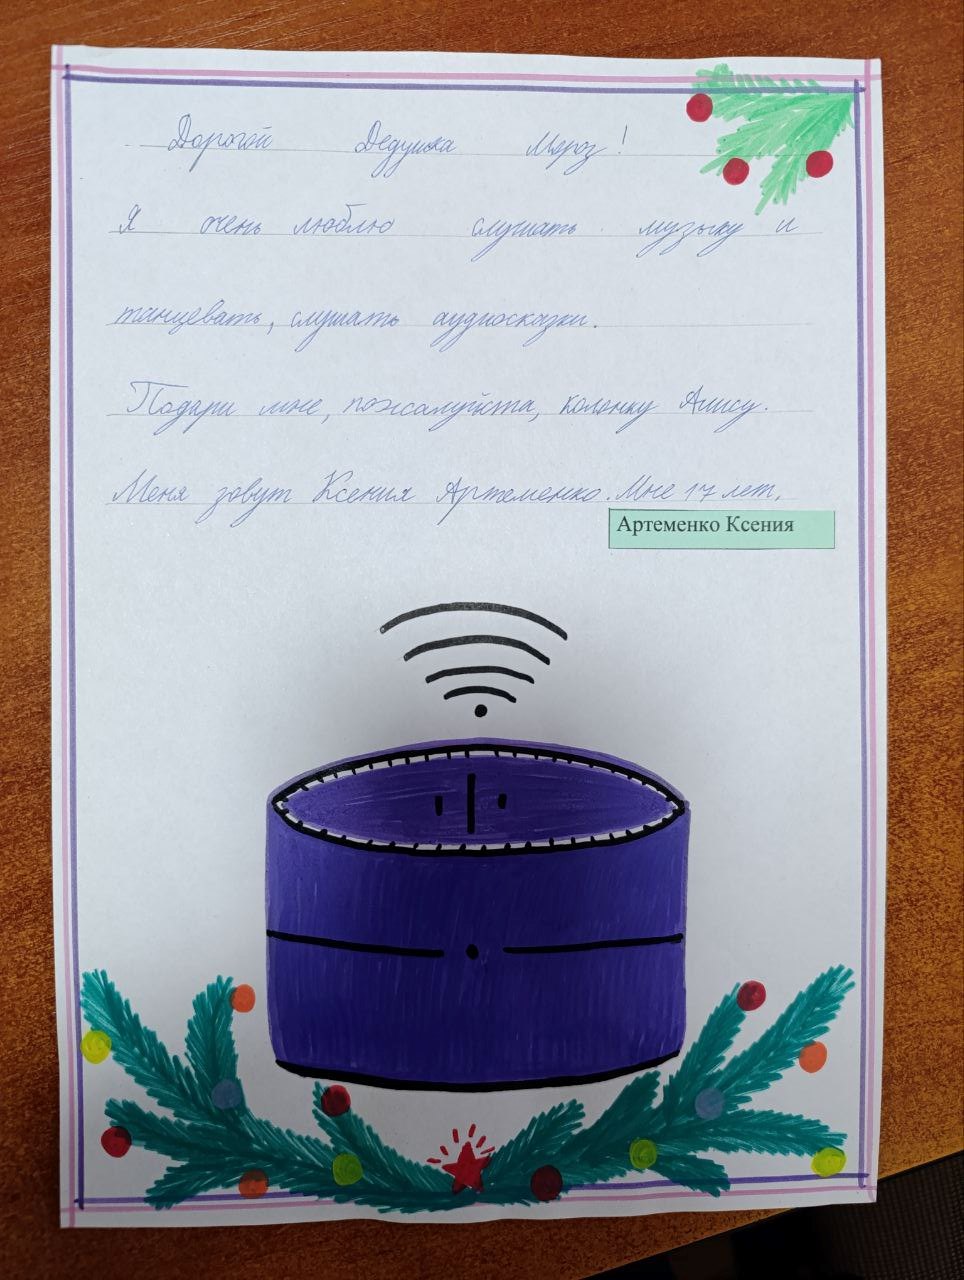 Дорогой Дедушка Мороз!
Я очень люблю слушать музыку и
танцевать, слушать аудиосказки.
Подари мне, пожалуйста, колонку Алису.
Меня зовут Ксения Артеменко. Мне 17 лет.
Артеменко Ксения